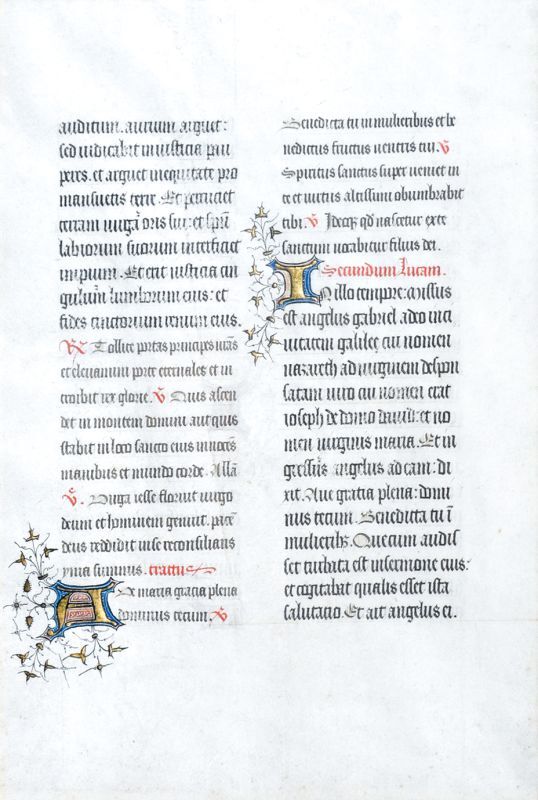 auditum. aurium arguet:
sed iudicabit in iusticia pau
peres. et arguet in equitate pro
mansuetis terre. Et percuciet
terram uirga oris sui: et spū
labiorum suorum interficiet
impium. Et erit iusticia cin
gulum lumborum eius: et
fides cinctorium renum eius.
R℟ Tollite portas principes uras̄
et eleuamini porte eternales et in
troibit rex glorie. ℣ Quis ascen
det in montem domini aut quis
stabit in loco sancto eius innocēs
manibus et mundo corde. Allā
℣. Uirga iesse floruit uirgo
deum et hominem genuit. pacē
deus reddidit in se reconsilians
yma summis. tractus
Aue maria gracia plena
dominus tecum. ℣
Benedicta tu in mulieribus et be
nedictus fructus uentris tui. ℣
Spiritus sanctus super ueniet in
te et uirtus altissimi obumbrabit
tibi. ℣ Ideoq; qd nascetur ex te
sanctum uocabitur filius dei.
Secundum Lucam.
In illo tempore: Missus
est angelus gabriel a deo in ci
uitatem galilee cui nomen
nazareth ad uirginem despon
satam uiro cui nomen erat
ioseph de domo dauid: et no
men uirginis maria. Et in
gressus angelus ad eam: di
xit. Aue gratia plena: domi
nus tecum. Benedicta tu ī
mulierib;. Que cum audis
set turbata est in sermone eius:
et cogitabat qualis esset ista
salutacio. Et ait angelus ei.